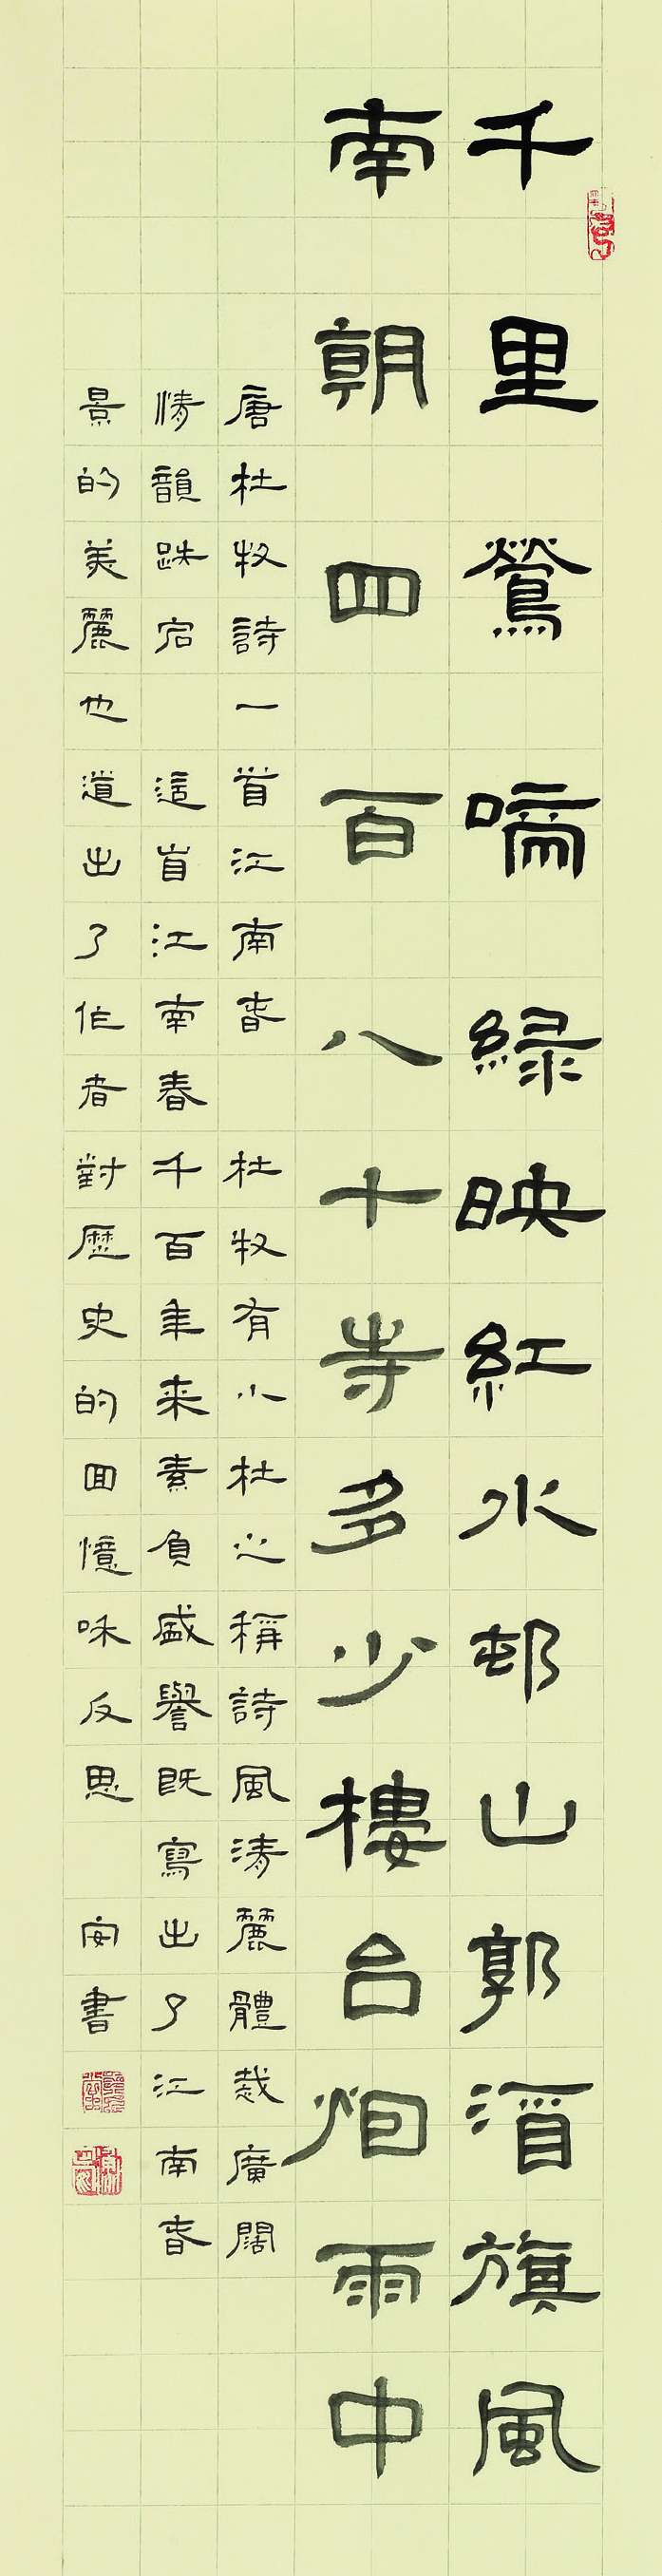 千里鶯啼綠映紅水邨山郭酒旗風
南朝四百八十寺多少樓台烟雨中
唐杜牧詩一首江南春 杜牧有小杜之稱詩風清麗體裁廣闊
情韻跌宕 這首江南春千百年来素負盛譽既寫出了江南春
景的美麗也道出了作者對歷史的回憶和反思 安書